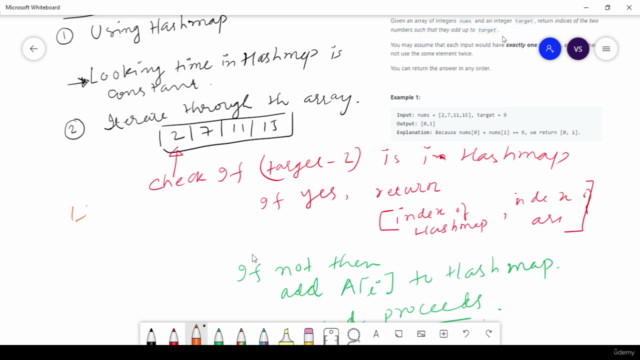 Microsoft Whiteboard
① Using Hashmap
→ Looking time in Hashmap is
constant.
② Iterate through th array.
| 2 | 7 | 11 | 15 |
check If (target - 2) is in Hashmap
If yes, return
[index of Hashmap, index of
If not then
add A[i] to Hashmap.
proceeds
Given an array of integers nums and an integer target, return indices of the two
numbers such that they add up to target.
You may assume that each input would have exactly one
not use the same element twice.
You can return the answer in any order.
Example 1:
Input: nums = [2,7,11,15], target = 9
Output: [0,1]
Explanation: Because nums[0] + nums[1] == 9, we return [0, 1].
VS
A
ûdemy